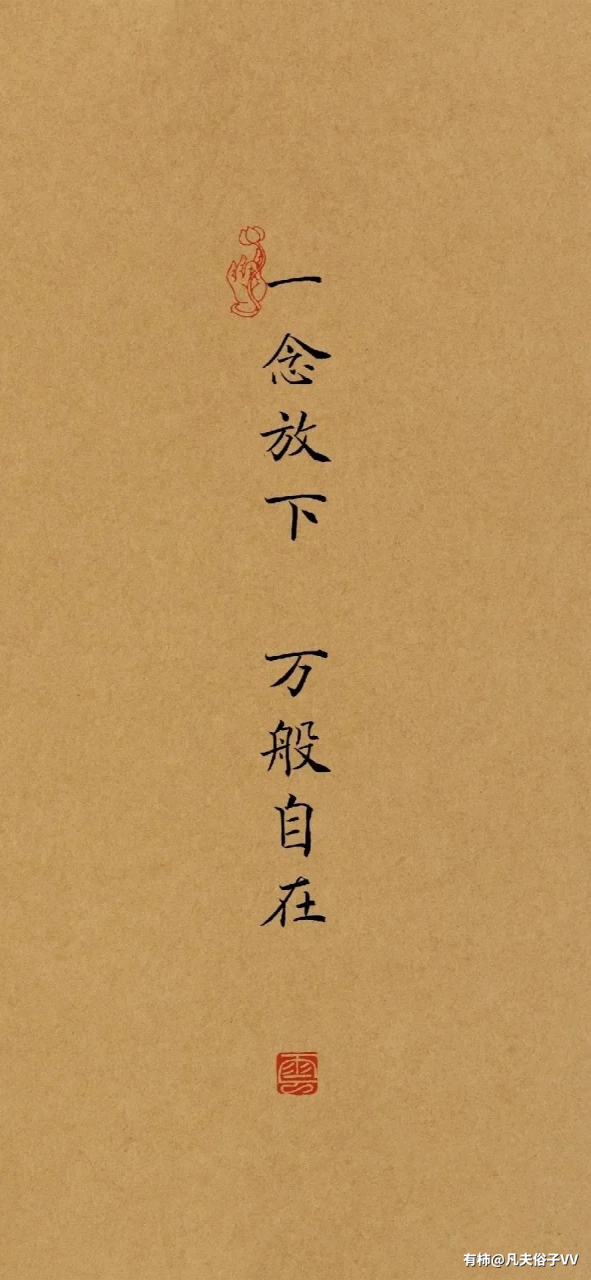 一念放下 万般自在
雲
有柿@凡夫俗子VV